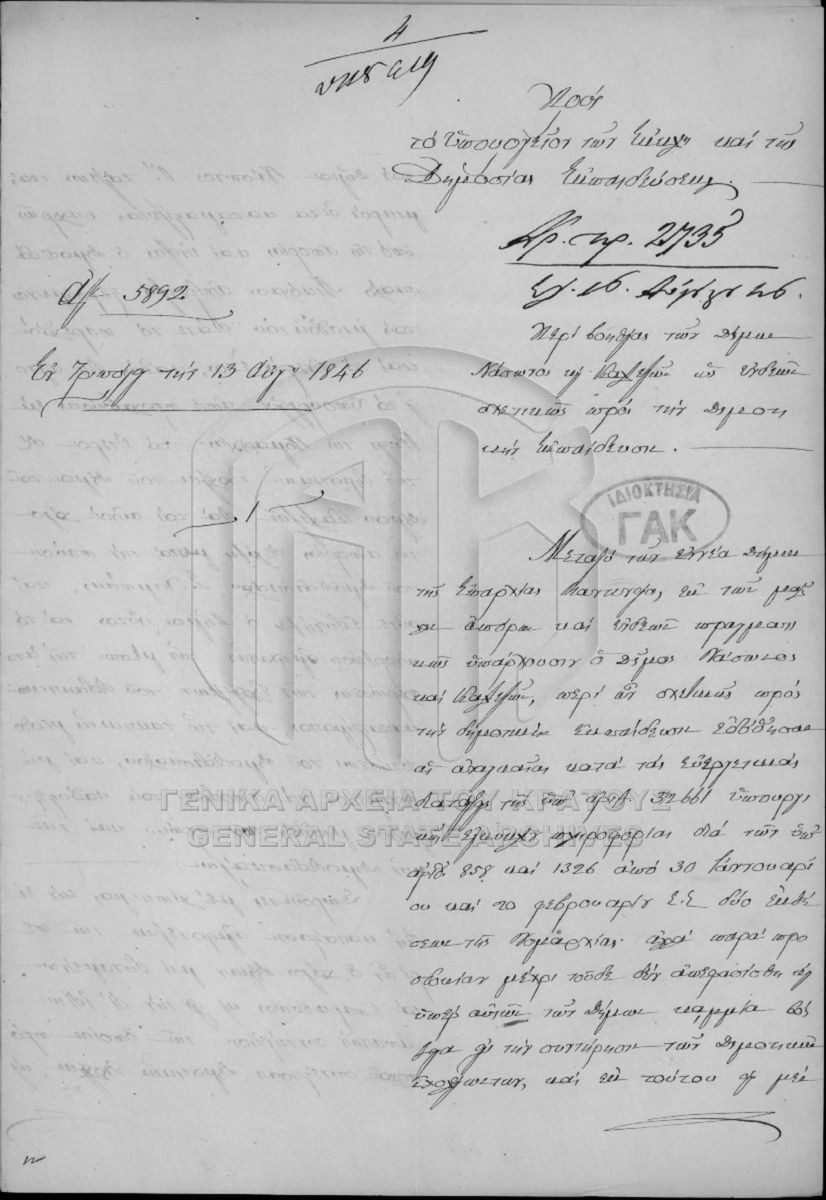 4
Πρός
τὸ Ὑπουργεῖον τῶν Ἐκκλ. καὶ τῆς
Δημοσίας Ἐκπαιδεύσεως.
Ἀρ. πρ. 2735
Ἀρ. 5892
Ἐλ. 16. Αὐγούστου 46.
Ἐν Τριπόλει τὴν 13 Αὐγ. 1846
Περὶ βοηθείας τῶν Δήμων
Νάσωνος καὶ Καλτεζῶν ὡς ἐνδεῶν
σχετικῶς πρὸς τὴν Δημοτι
κὴν Ἐκπαίδευσιν.
1
ΙΔΙΟΚΤΗΣΙΑ
ΓΑΚ
Μεταξὺ τῶν ἐννέα Δήμων
τῆς Ἐπαρχίας Μαντινείας, ἐκ τῶν μᾶλ
λον ἀπόρων καὶ ἐνδεῶν πραγματι
κῶς ὑπάρχουσιν ὁ Δῆμος Νάσωνος
καὶ Καλτεζῶν, περὶ ὧν σχετικῶς πρὸς
τὴν δημοτικὴν ἐκπαίδευσιν ἐδόθησαν
αἱ ἀναγκαῖαι κατὰ τὰς εὐεργετικὰς
διατάξεις τῆς ὑπ' ἀριθ. 32661 ὑπουργι
κῆς ἐγκυκλίου πληροφορίαι διὰ τῶν ὑπ'
ἀριθ. 858 καὶ 1326 ἀπὸ 30 Ἰαννουαρί
ου καὶ 10 Φεβρουαρίου Ε.Ε. δύο ἐκθέ
σεων τῆς Νομαρχίας. ἀλλὰ παρὰ προ
σδοκίαν μέχρι τοῦδε δὲν ἀπεφασίσθη
ὑπὲρ αὐτῶν τῶν Δήμων καμμία βοή
θεια διὰ τὴν συντήρησιν τῶν Δημοτικῶν
Σχολείων των, καὶ ἐκ τούτου
ΓΕΝΙΚΑ ΑΡΧΕΙΑ ΤΟΥ ΚΡΑΤΟΥΣ
GENERAL STATE ARCHIVES